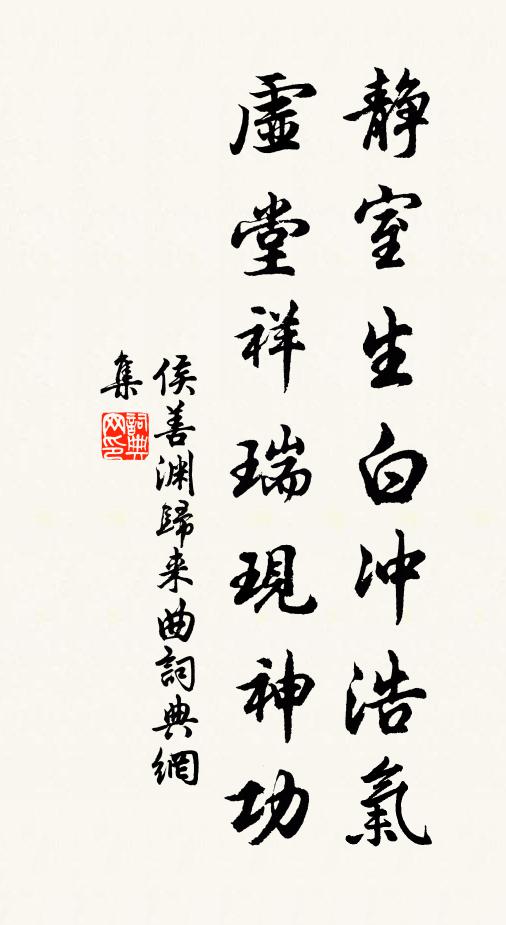 静室生白冲浩氣
虛堂祥瑞現神功
侯善渊歸来曲詞典網
集
詞典
网印